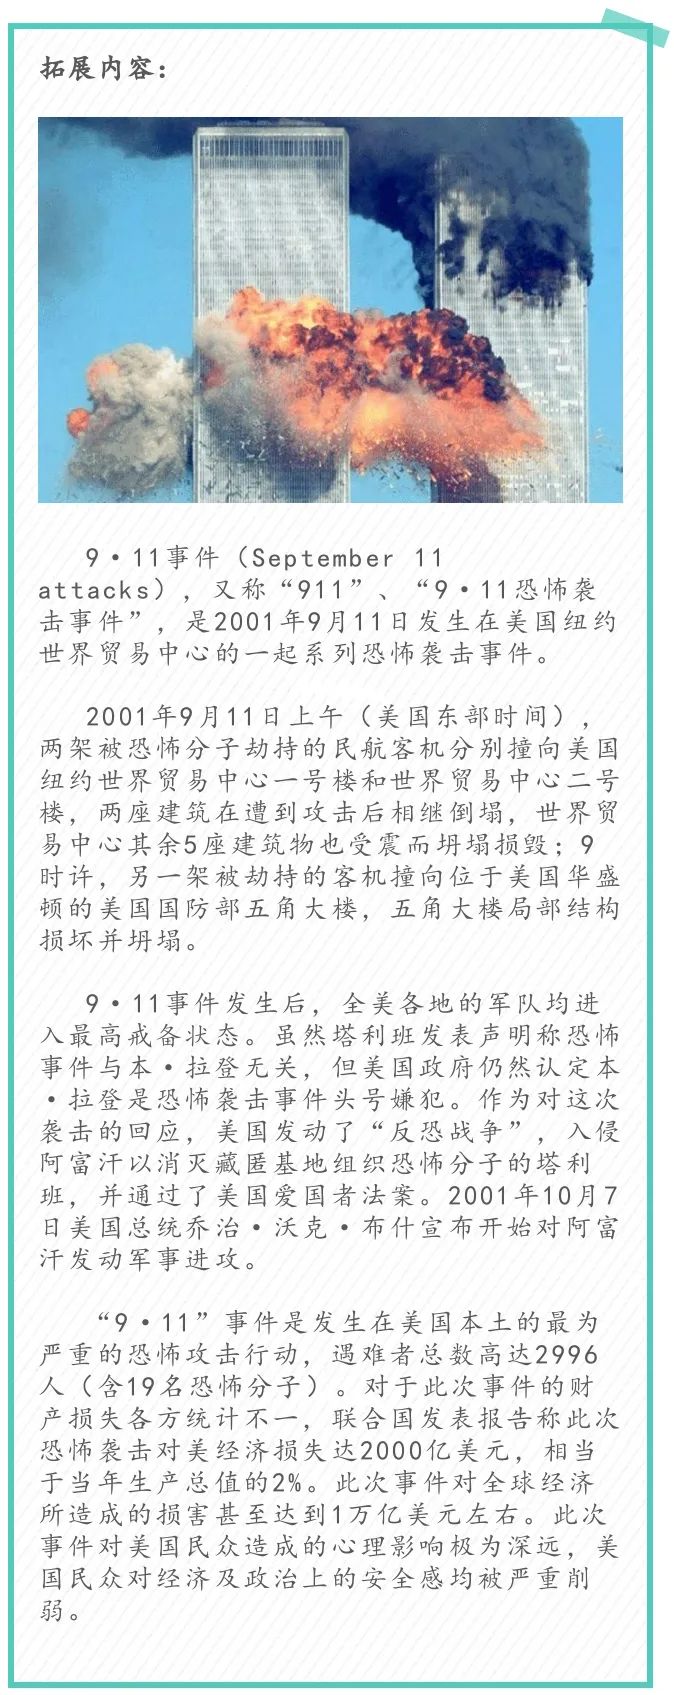 拓展内容：
9·11事件（September 11
attacks），又称“911”、“9·11恐怖袭
击事件”，是2001年9月11日发生在美国纽约
世界贸易中心的一起系列恐怖袭击事件。
2001年9月11日上午（美国东部时间），
两架被恐怖分子劫持的民航客机分别撞向美国
纽约世界贸易中心一号楼和世界贸易中心二号
楼，两座建筑在遭到攻击后相继倒塌，世界贸
易中心其余5座建筑物也受震而坍塌损毁；9
时许，另一架被劫持的客机撞向位于美国华盛
顿的美国国防部五角大楼，五角大楼局部结构
损坏并坍塌。
9·11事件发生后，全美各地的军队均进
入最高戒备状态。虽然塔利班发表声明称恐怖
事件与本·拉登无关，但美国政府仍然认定本
·拉登是恐怖袭击事件头号嫌犯。作为对这次
袭击的回应，美国发动了“反恐战争”，入侵
阿富汗以消灭藏匿基地组织恐怖分子的塔利
班，并通过了美国爱国者法案。2001年10月7
日美国总统乔治·沃克·布什宣布开始对阿富
汗发动军事进攻。
“9·11”事件是发生在美国本土的最为
严重的恐怖攻击行动，遇难者总数高达2996
人（含19名恐怖分子）。对于此次事件的财
产损失各方统计不一，联合国发表报告称此次
恐怖袭击对美经济损失达2000亿美元，相当
于当年生产总值的2%。此次事件对全球经济
所造成的损害甚至达到1万亿美元左右。此次
事件对美国民众造成的心理影响极为深远，美
国民众对经济及政治上的安全感均被严重削
弱。